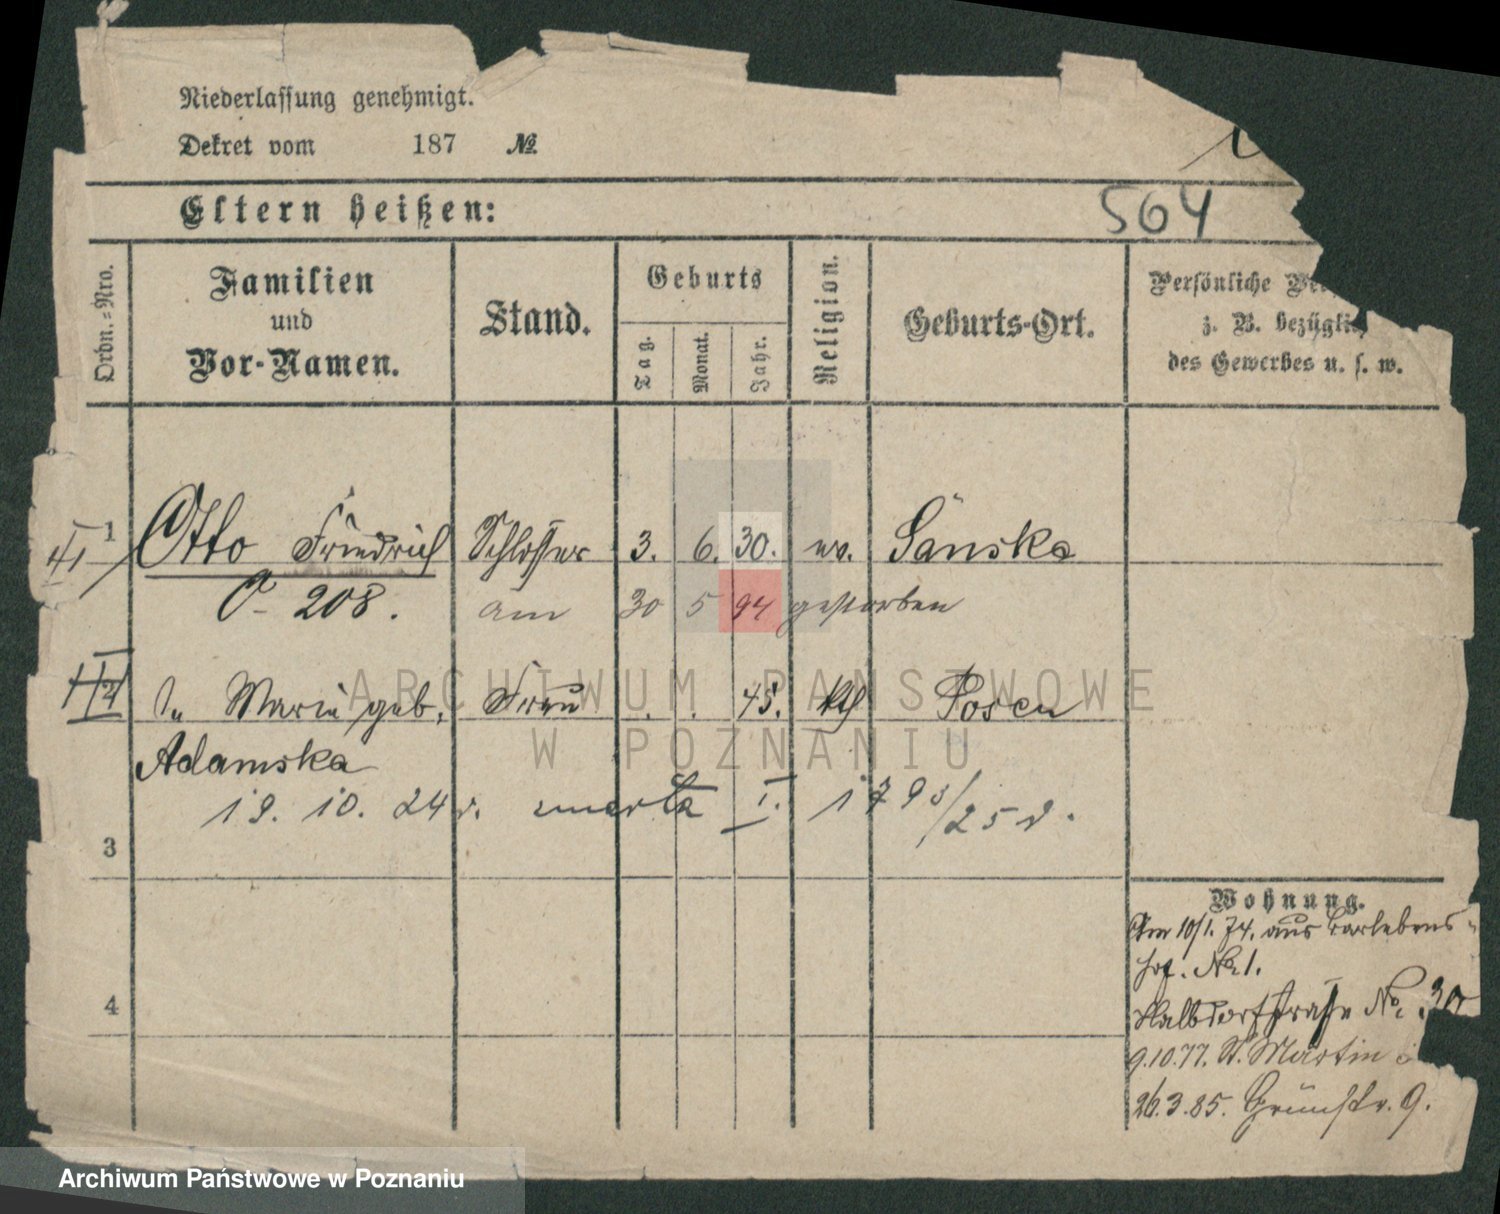 Niederlassung genehmigt.
Dekret vom 187 №
Eltern heißen:
564
Ordn.=Nro.
Familien
und
Vor-Namen.
Stand.
Geburts
Tag.
Monat.
Jahr.
Religion.
Geburts-Ort.
Persönliche
z. B. bezüglich
des Gewerbes u. s. w.
1 Otto Friedrich Schlosser 3. 6. 30. ev. Sänska
O- 208. am 30 5 94 gestorben
2 Marie geb. Frau . . 45. kth Posen
Adamska
19. 10. 24 r. umarła I. 1793/25 r.
3
4
Wohnung.
Am 10/1. 74. aus
No. 1.
Halbdorfstrasse No. 30
9.10.77. St. Martin
26.3.85. Grünstr. 9.
ARCHIWUM PAŃSTWOWE
W POZNANIU
Archiwum Państwowe w Poznaniu